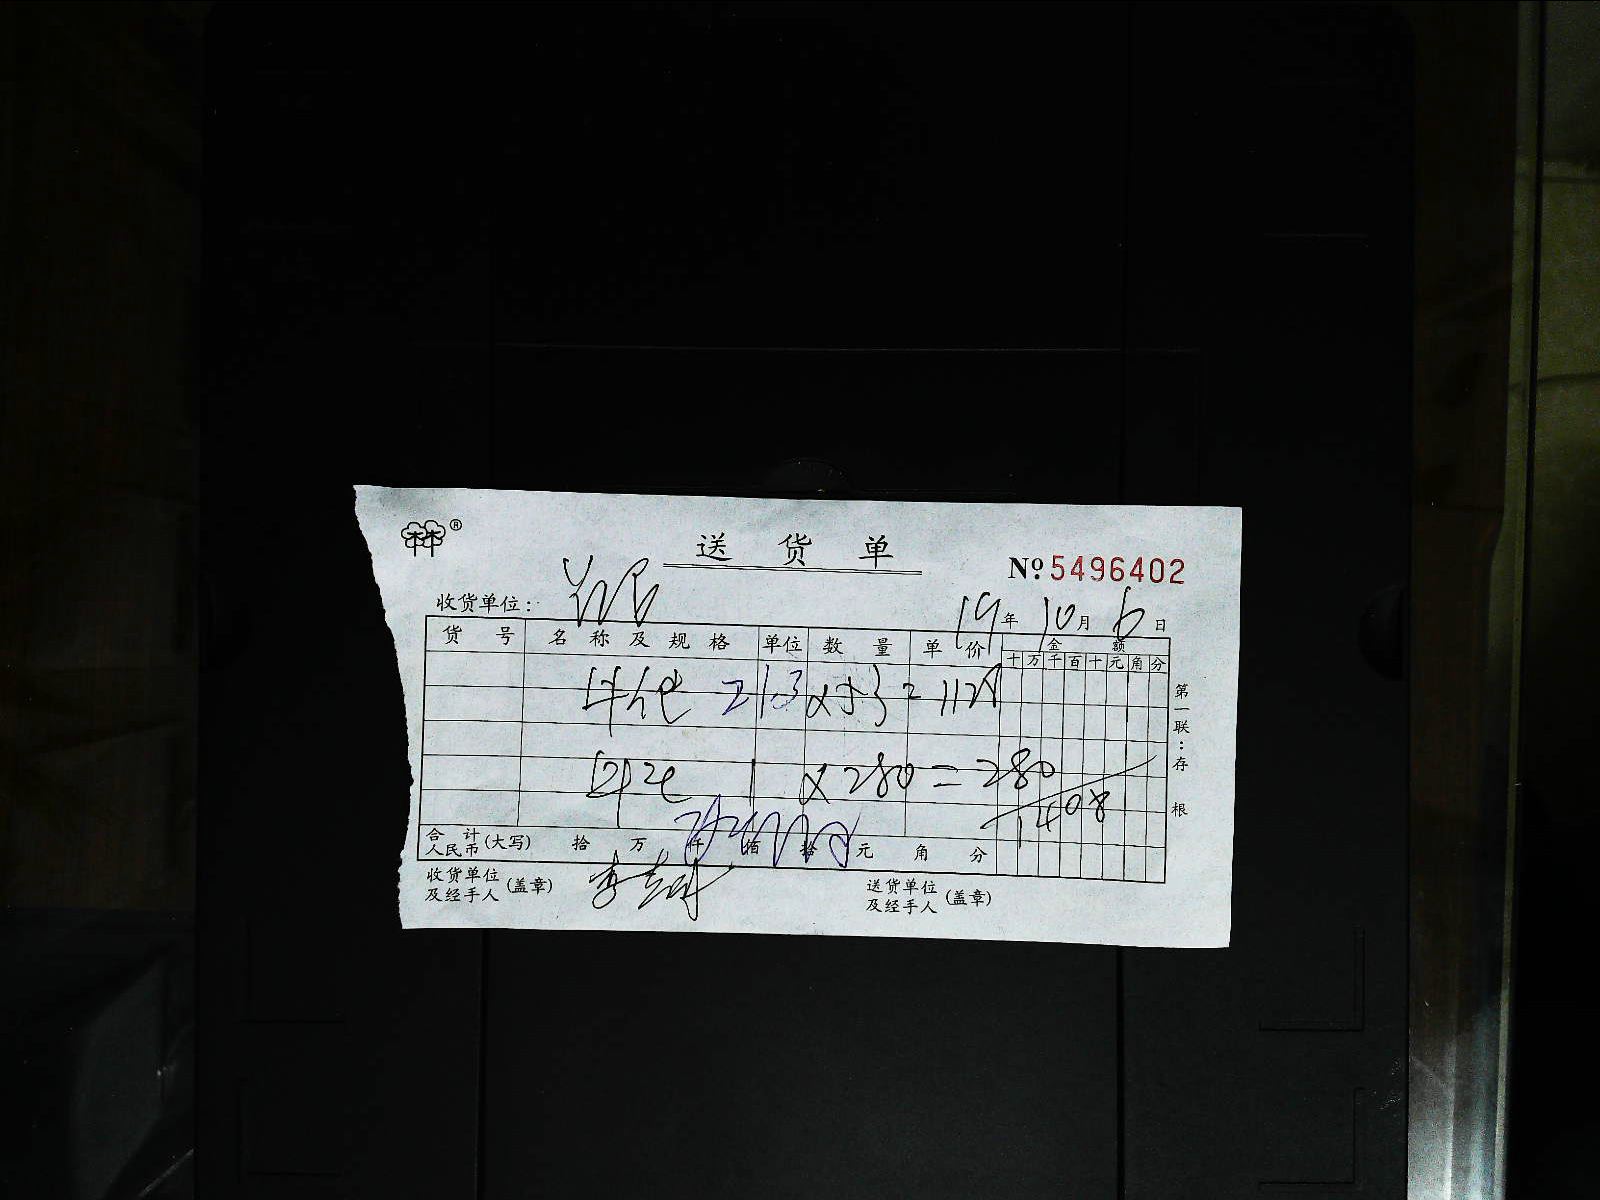 林®
送货单
№ 5496402
收货单位:
19年10月6日
货号 名称及规格 单位 数量 单价 金额
十万千百十元角分
21.3 × 53 = 1128
1 × 280 = 280
1408
合计人民币(大写) 拾 万 仟 佰 拾 元 角 分
收货单位及经手人(盖章) 送货单位及经手人(盖章)
第一联:存根